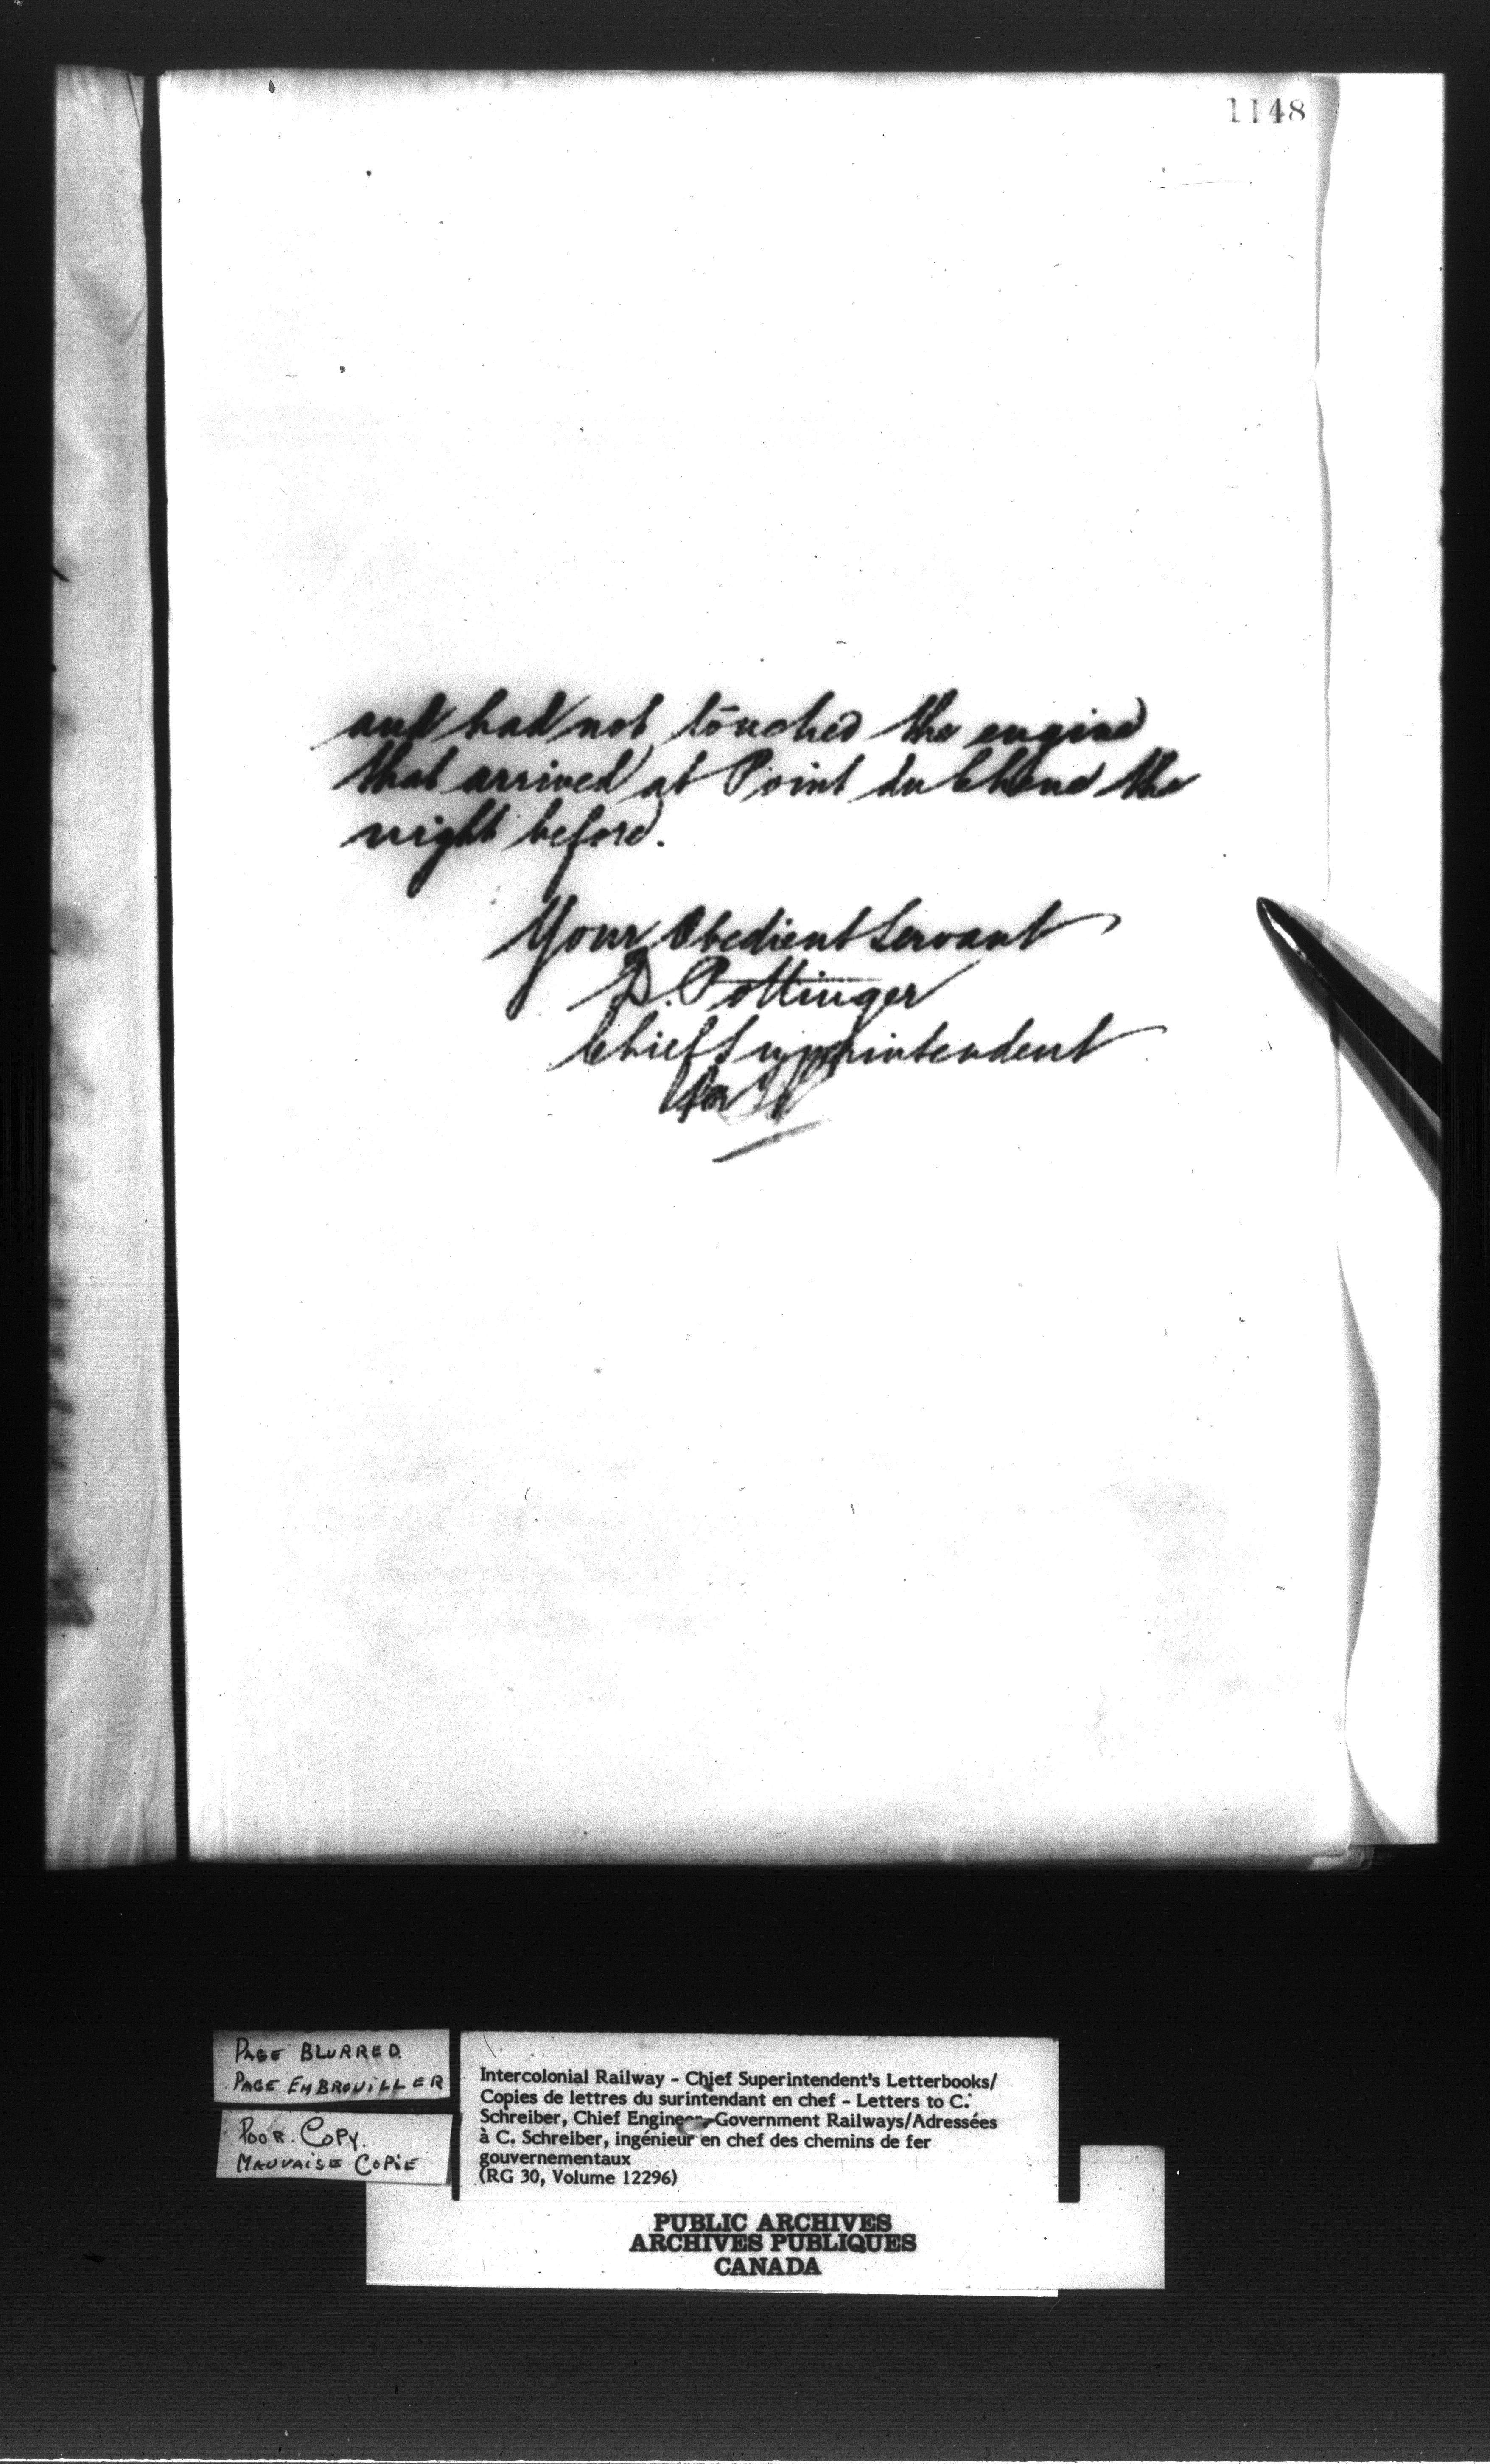 1148
and had not touched the engine
that arrived at Point du Chene the
night before.
Your Obedient Servant
D. Pottinger
Chief Superintendent
PAGE BLURRED
PAGE EMBROUILLER
POOR COPY.
MAUVAISE COPIE
Intercolonial Railway - Chief Superintendent's Letterbooks/
Copies de lettres du surintendant en chef - Letters to C.
Schreiber, Chief Engineer-Government Railways/Adressées
à C. Schreiber, ingénieur en chef des chemins de fer
gouvernementaux
(RG 30, Volume 12296)
PUBLIC ARCHIVES
ARCHIVES PUBLIQUES
CANADA